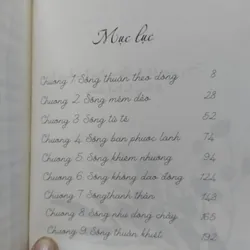 Mục lục
Chương 1: Sống thuận theo dòng 3
Chương 2: Sống mềm dẻo 28
Chương 3: Sống tử tế 52
Chương 4: Sống ban phước lành 74
Chương 5: Sống khiêm nhường 94
Chương 6: Sống không dao động 124
Chương 7: Sống thanh thản 143
Chương 8: Sống như dòng chảy 165
Chương 9: Sống thuần khiết 192